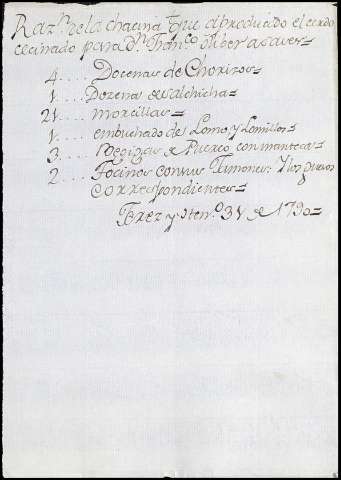 Raz.n de la chacina que a producido el cerdo
cecinado para Dn. Franco. a saver=
4.... Docenas de Chorizos=
1.... Dozena de salchicha=
21.... morcillas=
1.... embuchado de Lomo y Lomillos=
3.... Begigas de Puerco con manteca=
2.... Tocinos con sus Jamones: y los
correspondientes=
Jerez y 31 de 1790=